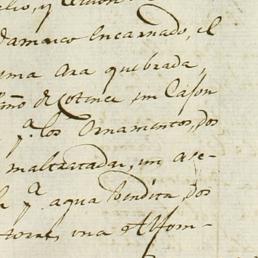 Damasco Encarnado, el
una Ara quebrada,
de Cotence, un Cajon
pª. los Ornamentos, dos
maltratadas, un ase-
pª agua bendita, dos
una Alfom-